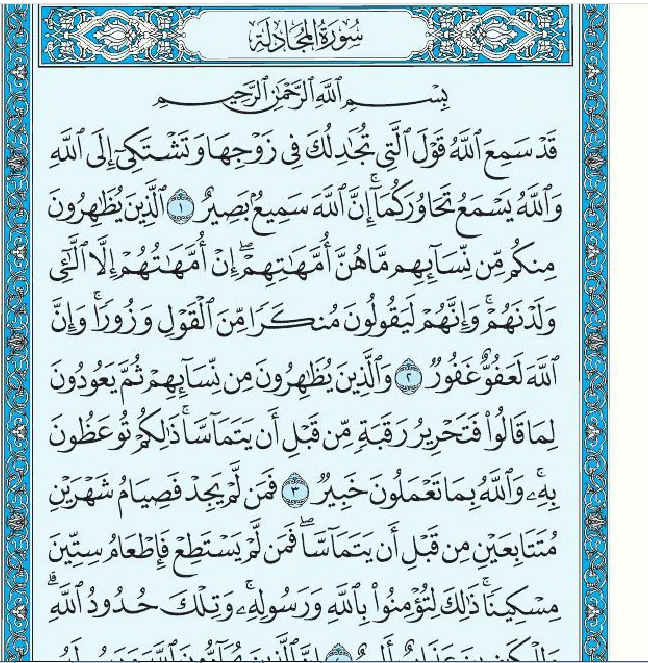 سُورَةُ المُجَادلَة
بِسْمِ ٱللَّهِ ٱلرَّحْمَٰنِ ٱلرَّحِيمِ
قَدْ سَمِعَ ٱللَّهُ قَوْلَ ٱلَّتِى تُجَٰدِلُكَ فِى زَوْجِهَا وَتَشْتَكِىٓ إِلَى ٱللَّهِ
وَٱللَّهُ يَسْمَعُ تَحَاوُرَكُمَآ ۚ إِنَّ ٱللَّهَ سَمِيعٌۢ بَصِيرٌ ١ ٱلَّذِينَ يُظَٰهِرُونَ
مِنكُم مِّن نِّسَآئِهِم مَّا هُنَّ أُمَّهَٰتِهِمْ ۖ إِنْ أُمَّهَٰتُهُمْ إِلَّا ٱلَّٰٓـِٔى
وَلَدْنَهُمْ ۚ وَإِنَّهُمْ لَيَقُولُونَ مُنكَرًا مِّنَ ٱلْقَوْلِ وَزُورًا ۚ وَإِنَّ
ٱللَّهَ لَعَفُوٌّ غَفُورٌ ٢ وَٱلَّذِينَ يُظَٰهِرُونَ مِن نِّسَآئِهِمْ ثُمَّ يَعُودُونَ
لِمَا قَالُوا۟ فَتَحْرِيرُ رَقَبَةٍ مِّن قَبْلِ أَن يَتَمَآسَّا ۚ ذَٰلِكُمْ تُوعَظُونَ
بِهِۦ ۚ وَٱللَّهُ بِمَا تَعْمَلُونَ خَبِيرٌ ٣ فَمَن لَّمْ يَجِدْ فَصِيَامُ شَهْرَيْنِ
مُتَتَابِعَيْنِ مِن قَبْلِ أَن يَتَمَآسَّا ۖ فَمَن لَّمْ يَسْتَطِعْ فَإِطْعَامُ سِتِّينَ
مِسْكِينًا ۚ ذَٰلِكَ لِتُؤْمِنُوا۟ بِٱللَّهِ وَرَسُولِهِۦ ۚ وَتِلْكَ حُدُودُ ٱللَّهِ ۗ